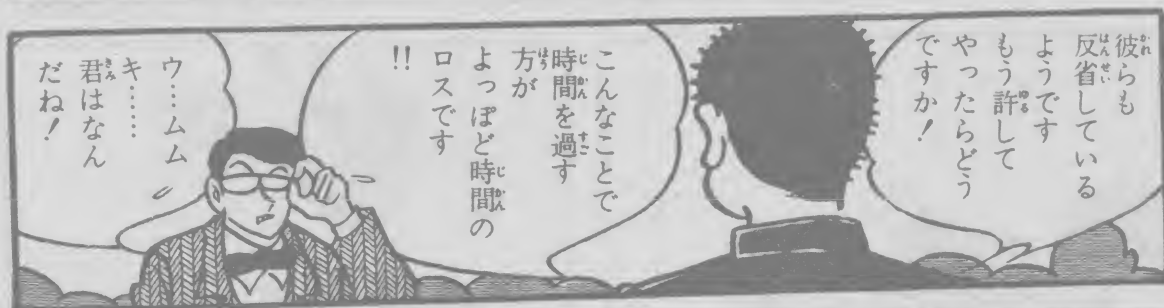 彼らも
反省している
ようです
もう許して
やったらどう
ですか!
こんなことで
時間を過す
方が
よっぽど時間の
ロスです
!!
ウ…ムム
キ………
君はなん
だね!